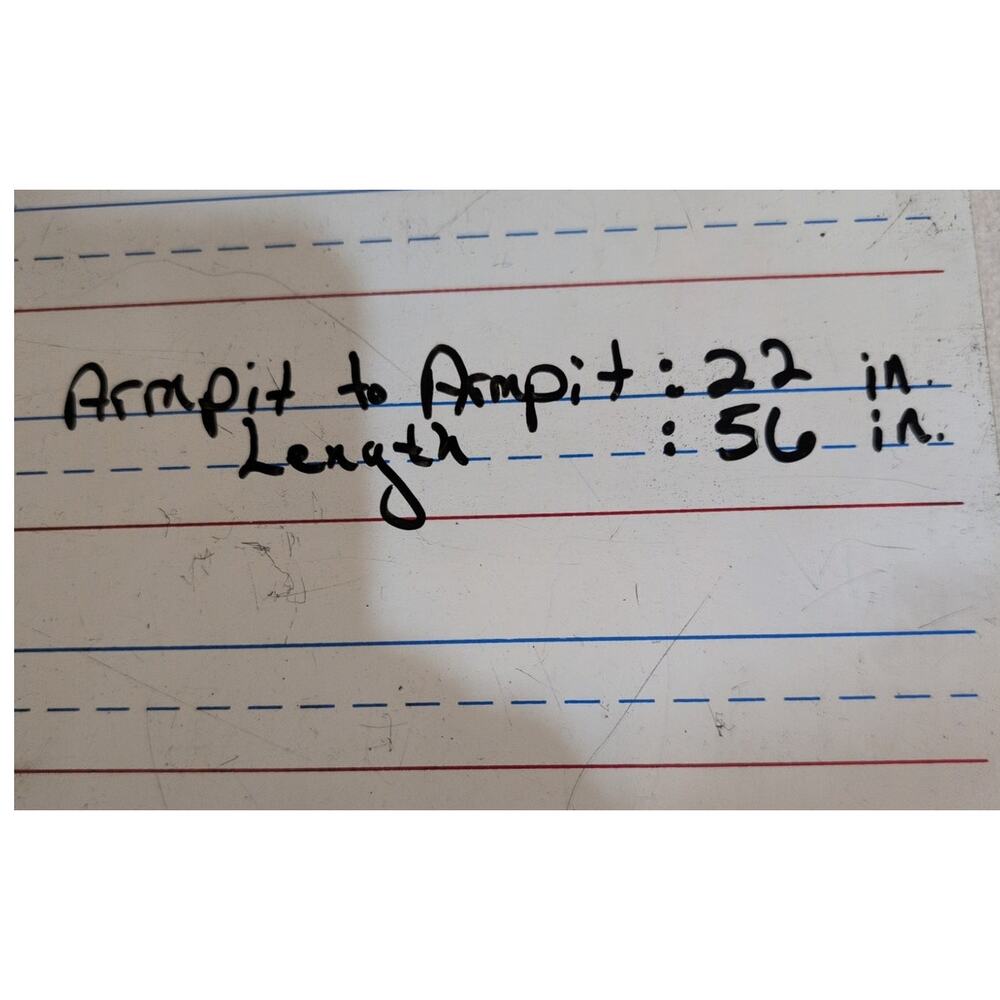 Armpit to Armpit : 22 in.
Length : 56 in.